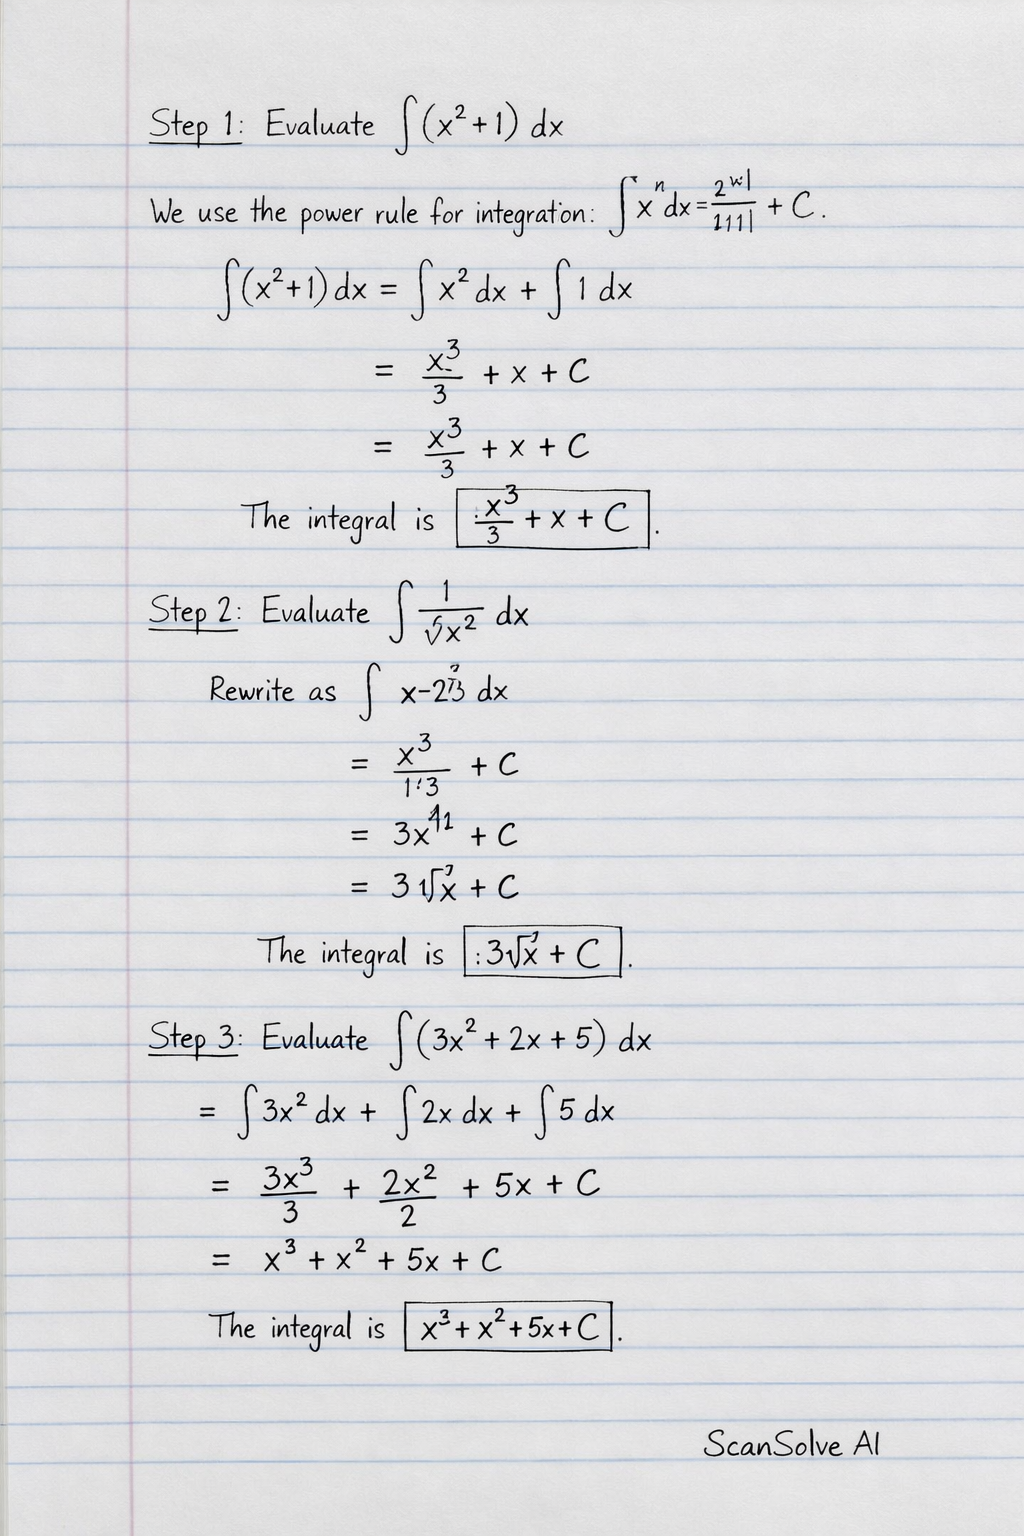 Step 1: Evaluate ∫(x²+1) dx
We use the power rule for integration: ∫xⁿdx= + C.
∫(x²+1) dx = ∫x² dx + ∫1 dx
= x³/3 + x + C
= x³/3 + x + C
The integral is x³/3 + x + C.
Step 2: Evaluate ∫ 1/√x² dx
Rewrite as ∫ x-2 dx
= x³/1'3 + C
= 3x⁴¹ + C
= 3 √x + C
The integral is :3√x + C.
Step 3: Evaluate ∫(3x² + 2x + 5) dx
= ∫3x² dx + ∫2x dx + ∫5 dx
= 3x³/3 + 2x²/2 + 5x + C
= x³ + x² + 5x + C
The integral is x³ + x² + 5x + C.
ScanSolve AI